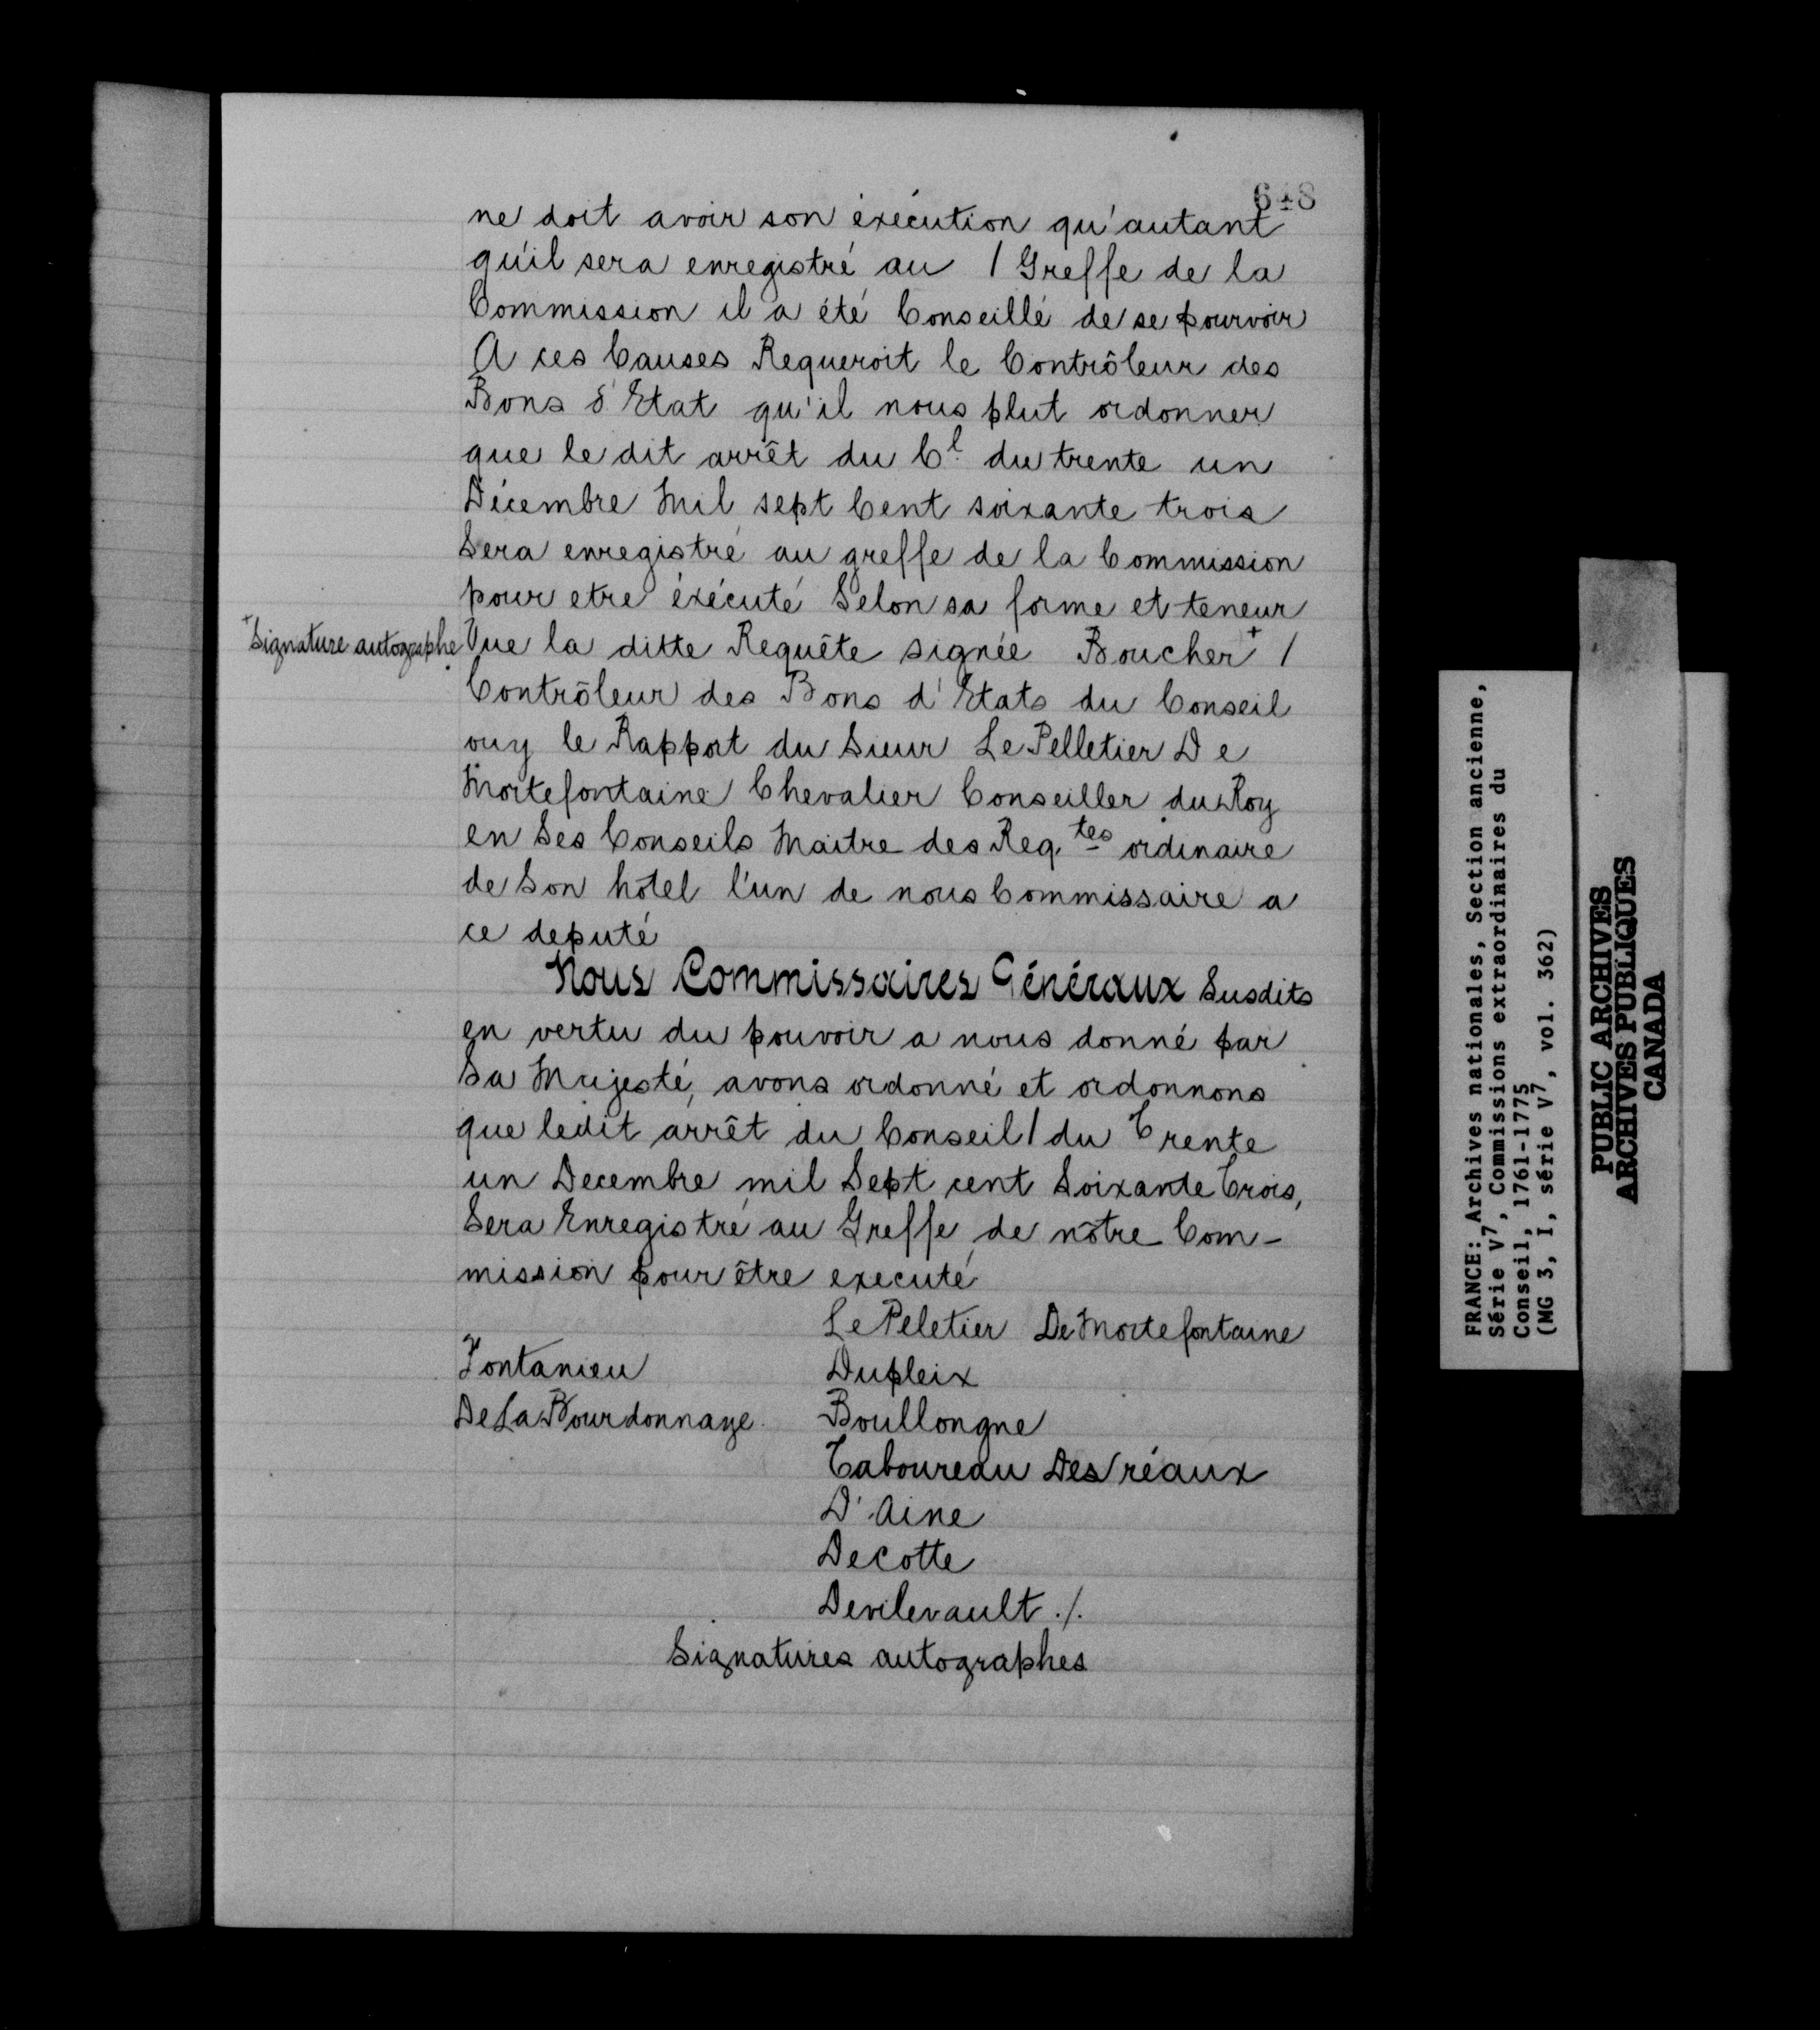 648
ne doit avoir son éxécution qu'autant
qu'il sera enregistré au / Greffe de la
Commission il a été Conseillé de se pourvoir
A ces Causes Requeroit le Contrôleur des
Bons d'Etat qu'il nous plut ordonner
que le dit arrêt du Cl du trente un
Décembre Mil sept Cent soixante trois
Sera enregistré au greffe de la Commission
pour etre éxécuté Selon sa forme et teneur
+ Signature autographe
Vue la ditte Requête signée Boucher + /
Contrôleur des Bons d'Etats du Conseil
ouy le Rapport du Sieur Le Pelletier De
Mortefontaine Chevalier Conseiller du Roy
en Ses Conseils Maitre des Reqtes ordinaire
de Son hôtel l'un de nous Commissaire a
ce deputé
Nous Commissaires Généraux Susdits
en vertu du pouvoir a nous donné par
Sa Majesté, avons ordonné et ordonnons
que ledit arrêt du Conseil / du Trente
un Decembre mil Sept cent Soixante Trois,
Sera Enregistré au Greffe de nôtre Com-
mission pour être executé
Le Peletier De Mortefontaine
Fontanieu Dupleix
De La Bourdonnaye Boullongne
Taboureau Des réaux
D'Aine
Decotte
Devilevault ./.
Signatures autographes
FRANCE: Archives nationales, Section ancienne,
Série V7, Commissions extraordinaires du
Conseil, 1761-1775
(MG 3, I, série V7, vol. 362)
PUBLIC ARCHIVES
ARCHIVES PUBLIQUES
CANADA